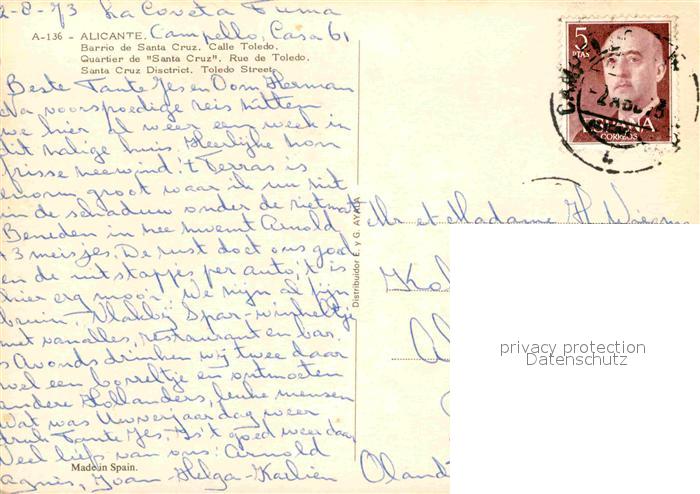 2-8-73 La Coveta Fuma
A-136 - ALICANTE. Campello, Casa 61
Barrio de Santa Cruz. Calle Toledo.
Quartier de "Santa Cruz". Rue de Toledo.
Santa Cruz Disctrict. Toledo Street.
Beste Tante Jes en Oom Herman
Na voorspoedige reis zitten
we hier al weer een week in
dit zalige huis. Heerlijke zon
frisse zeewind! 't Terras is
enorm groot waar ik nu zit
in de schaduw onder de rietmat
Beneden in zee zwemt Arnold
+3 meisjes. De rust doet ons goed
en de uitstapjes per auto, 't is
hier erg mooi. We zijn al fijn
bruin. Vlakbij Spar-winkeltje
met vanalles, restaurant en bar.
's Avonds drinken wij twee daar
wel een borreltje en ontmoeten
andere Hollanders, leuke mensen
Wat was Uw verjaardag weer
druk Tante Jes. Is't goed weer daar
Veel liefs van ons: Arnold
Agnès, Joan-Helga-Karlien
Made in Spain.
Distribuidor E. y G. AYALA
5
PTAS
ESPAÑA
CORREOS
Mr et Madame H.
Oland
privacy protection
Datenschutz